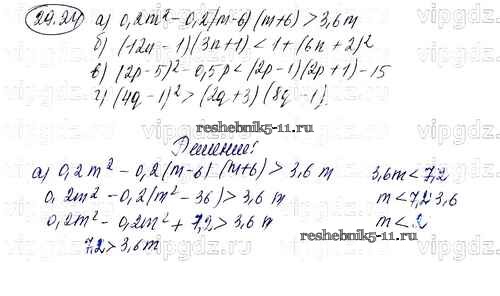 29.24
а) 0,2m² - 0,2(m-6)(m+6) > 3,6m
б) (12n - 1)(3n+1) < 1 + (6n + 2)²
в) (2p - 5)² - 0,5p < (2p - 1)(2p + 1) - 15
г) (4q - 1)² > (2q + 3)(8q - 1)
reshebnik5-11.ru
Решение:
а) 0,2m² - 0,2(m-6)·(m+6) > 3,6 m
0,2m² - 0,2(m² - 36) > 3,6 m
0,2m² - 0,2m² + 7,2 > 3,6 m
7,2 > 3,6m
3,6m < 7,2
m < 7,2:3,6
m < 2
reshebnik5-11.ru
vipgdz